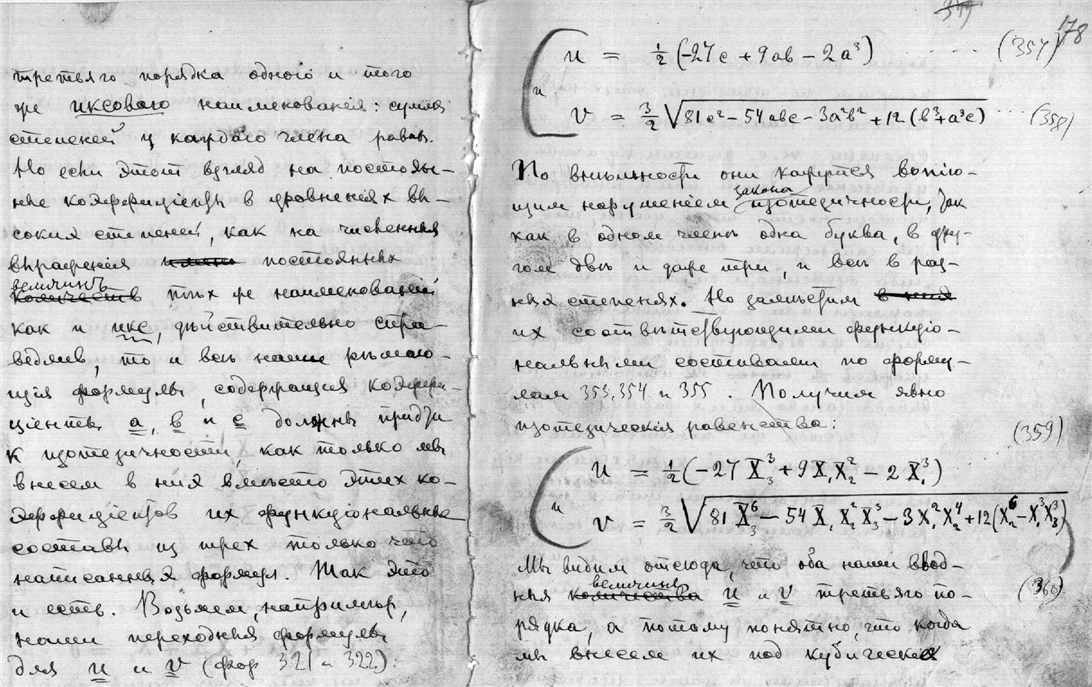 третьяго порядка одного и того
же иксоваго наименованія: сумма
степеней у каждаго члена равны.
Но если этот взгляд на постоян-
ные коэффиціенты в уравненіях вы-
соких степеней, как на численныя
выраженія постоянных
величинъ тѣх же наименованій
как и икс, дѣйствительно спра-
ведлив, то и всѣ наши рѣшаю-
щія формулы, содержащія коэффи-
ціенты a, b и c должны придти
к изотедичности, как только мы
внесем в них вмѣсто этих ко-
эффиціентов их функціональные
составы из трех только что
написанных формул. Так это
и есть. Возьмем, например,
наши переходныя формулы
для u и v (фор 321 и 322):
178
u = ½ (-27c + 9ab - 2a³) (357)
и
v = 3/2 √81c² - 54abc - 3a²b² + 12(b³ + a³c) (358)
По внѣшности они кажутся вопію-
закона
щим нарушеніем изотедичности, так
как в одном членѣ одна буква, в дру-
гом двѣ и даже три, и всѣ в раз-
ных степенях. Но замѣстим
их соотвѣтствующими функціо-
нальными составами по форму-
лам 353, 354 и 355. Получим явно
изотедическія равенства: (359)
u = ½ (-27 X₃³ + 9 X₁ X₂² - 2 X₁³)
и
v = 3/2 √81 X₃⁶ - 54 X₁ X₂² X₃³ - 3 X₁² X₂⁴ + 12 (X₂⁶ - X₁³ X₃³)
Мы видим отсюда, что оба наши ввод-
величины
ныя количества u и v третьяго по- (360)
рядка, а потому понятно, что когда
мы внесем их под кубическія